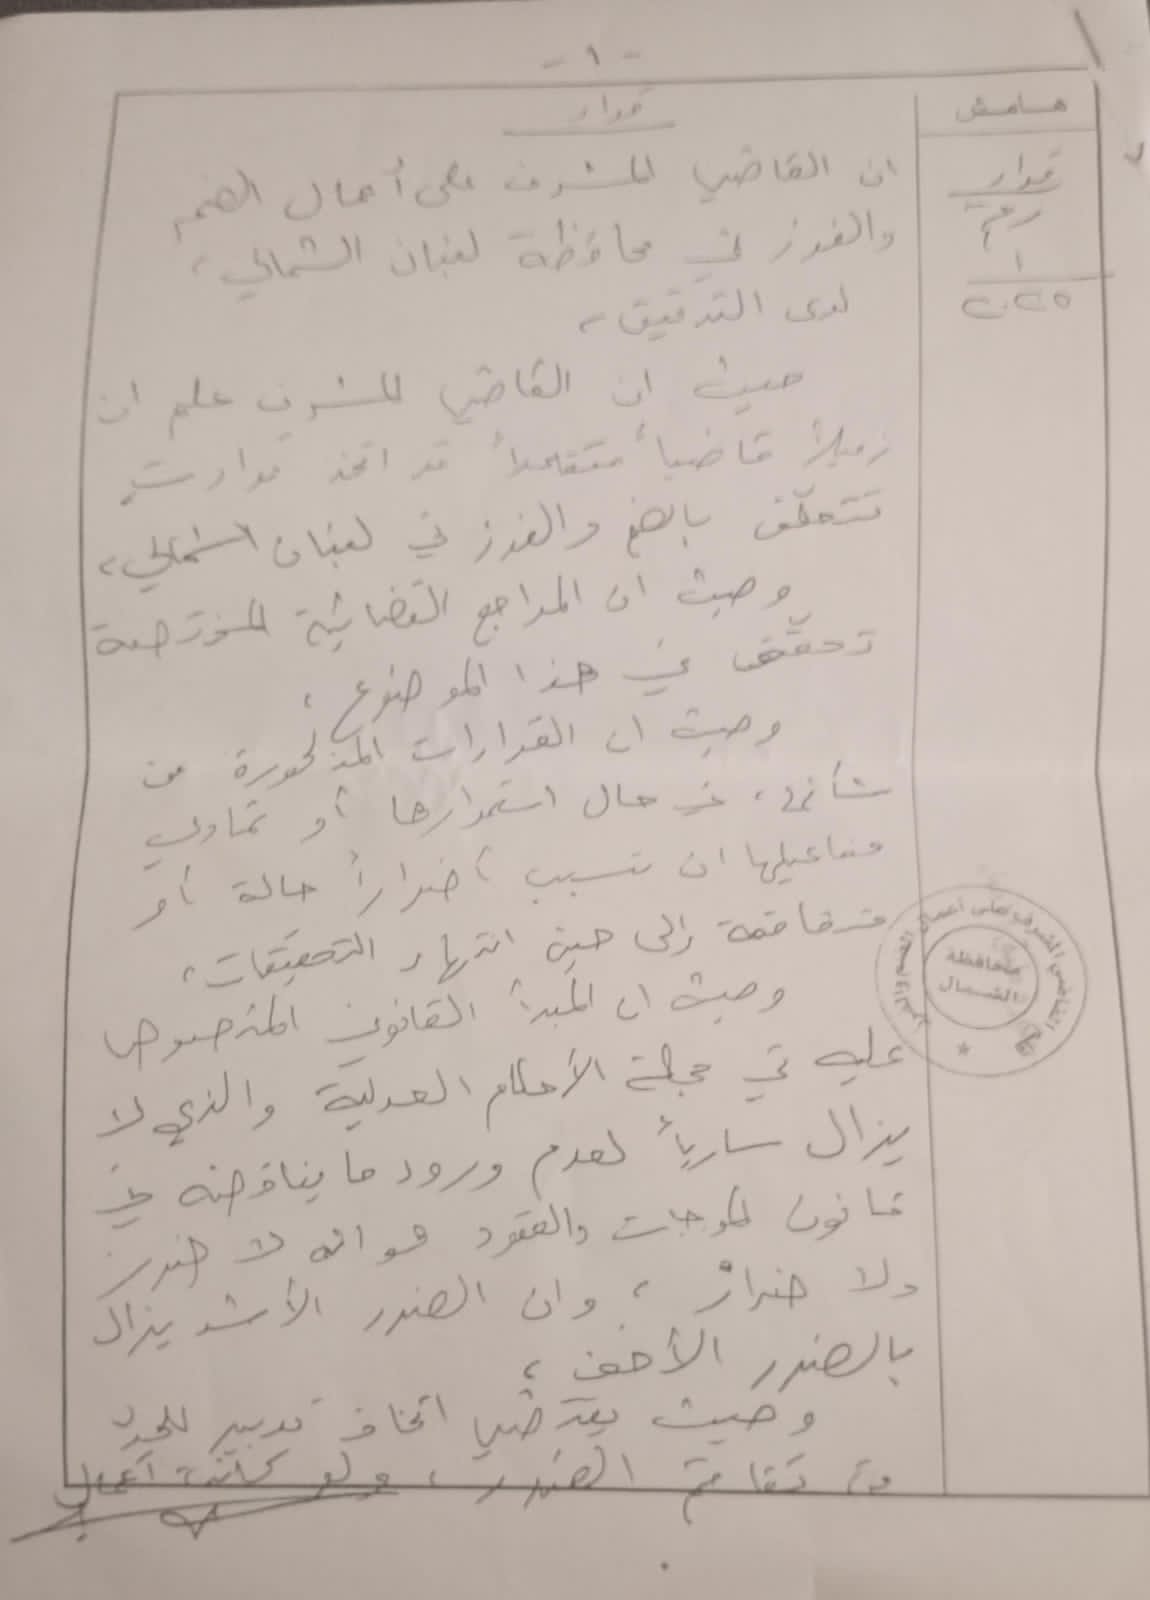 - ١ -
هامش
قرار
رقم
١
٢٠٢٥
قرار
ان القاضي المشرف على أعمال الضم
والفرز في محافظة لبنان الشمالي،
لدى التدقيق،
حيث ان القاضي المشرف علم ان
زميلاً قاضياً متقاعداً قد اتخذ قرارات
تتعلّق بالضم والفرز في لبنان الشمالي،
وحيث ان المراجع القضائية المختصة
تحقّق في هذا الموضوع،
وحيث ان القرارات المذكورة من
شأنها، في حال استمرارها أو تمادي
مفاعيلها ان تسبب أضراراً حالة أو
متفاقمة إلى حين انتهاء التحقيقات،
وحيث ان المبدأ القانوني المنصوص
عليه في مجلة الأحكام العدلية والذي لا
يزال سارياً لعدم ورود ما يناقضه في
قانون الموجبات والعقود هو انه لا ضرر
ولا ضرار، وان الضرر الأشد يزال
بالضرر الأخف،
وحيث يقتضي اتخاذ تدبير للحدّ
من تفاقم الضرر، ولو كانت أعمال
القاضي المشرف على أعمال الضم والفرز في
محافظة
الشمال